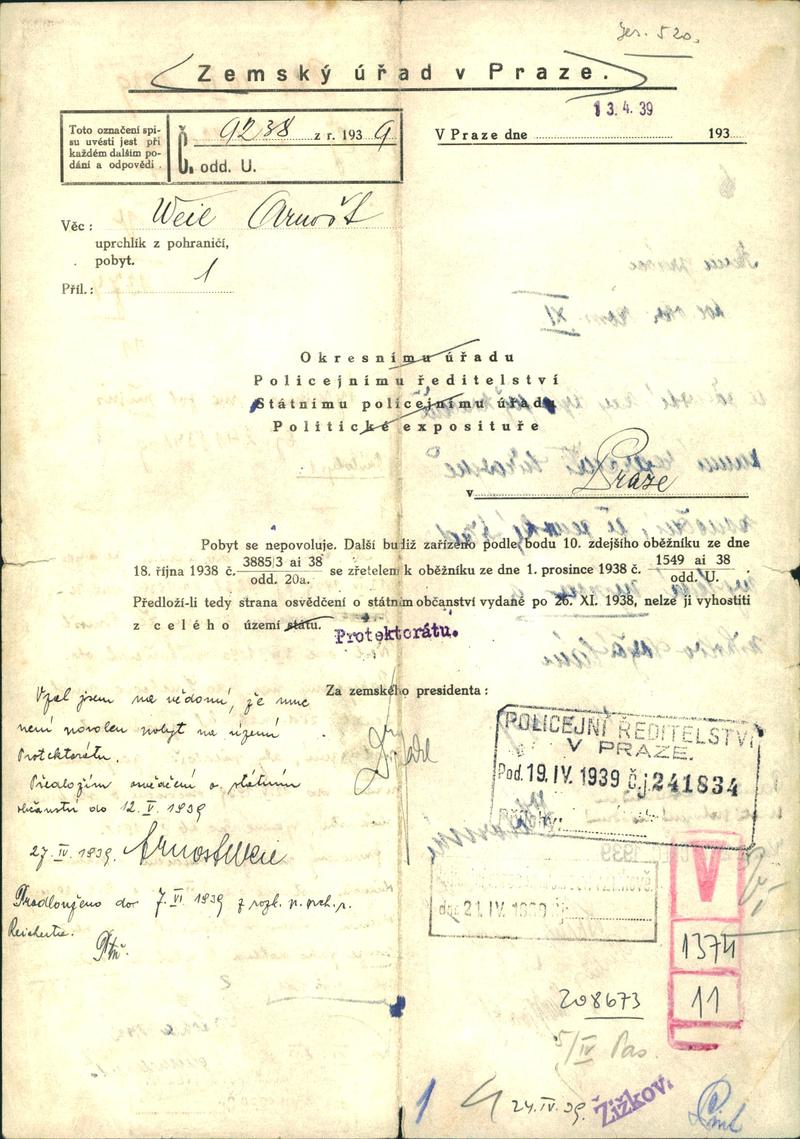 Jer. 520.
Zemský úřad v Praze.
13.4.39
Toto označení spi-
su uvésti jest při
každém dalším po-
dání a odpovědi.
Č. 9238 z r. 1939
odd. U.
V Praze dne 193
Věc: Weil Arnošt
uprchlík z pohraničí,
pobyt.
Příl.: 1
Okresnímu úřadu
Policejnímu ředitelství
Státnímu policejnímu úřadu
Politické exposituře
v Praze
Pobyt se nepovoluje. Další budiž zařízeno podle bodu 10. zdejšího oběžníku ze dne
18. října 1938 č. 3885/3 ai 38 odd. 20a. se zřetelem k oběžníku ze dne 1. prosince 1938 č. 1549 ai 38 odd. U.
Předloží-li tedy strana osvědčení o státním občanství vydané po 26. XI. 1938, nelze ji vyhostiti
z celého území státu.
Protektorátu.
Za zemského presidenta:
Vzal jsem na vědomí, že mne
není povolen pobyt na území
Protektorátu.
Předložím osvědčení o státním
občanství do 12. V. 1939
27. IV. 1939. Arnošt Weil
Prodlouženo do 7. VI. 1939 z rozk. p. rch. r.
POLICEJNÍ ŘEDITELSTVÍ
V PRAZE.
Pod. 19. IV. 1939 č.j. 241834
Přílohy:
dne 21. IV. 1939 čj.
V
1374
11
208673
5/IV Pas.
1
24. IV. 39.
Žižkov.